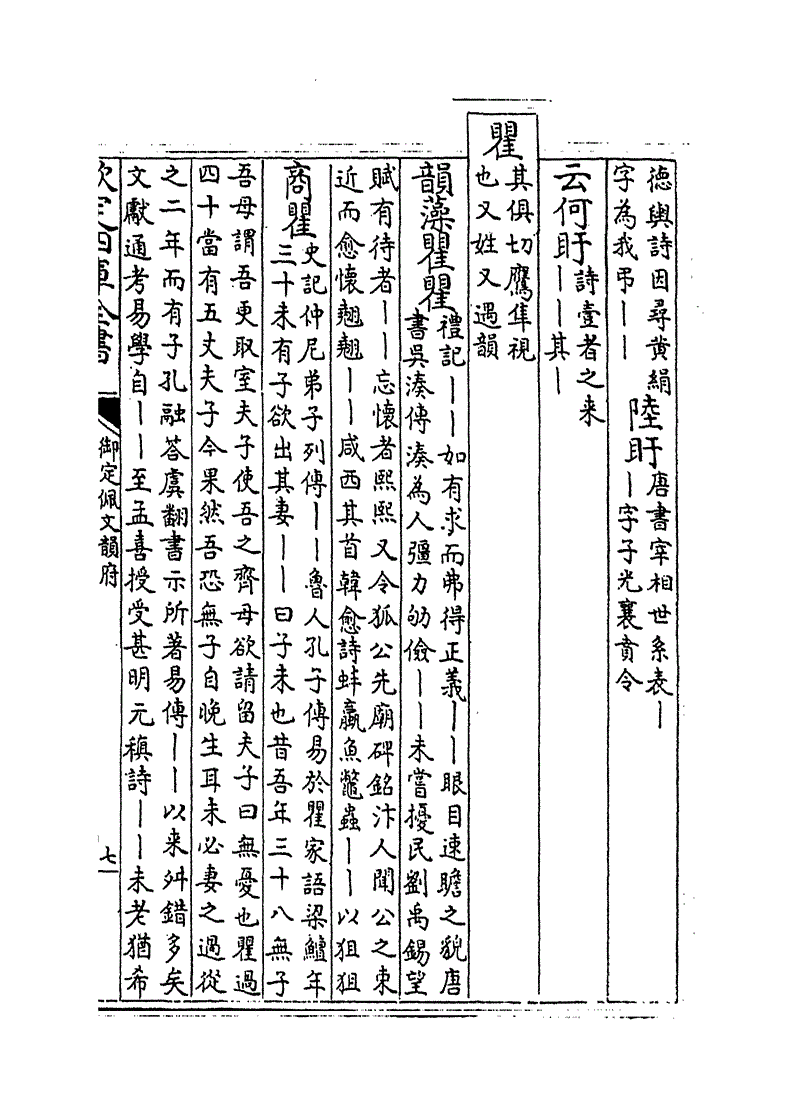 德輿詩因尋黄絹
字為我弔丨丨
陸盱
唐書宰相世系表丨
丨字子光襄賁令
云何盱
詩壹者之来
丨丨其丨
瞿
其俱切鷹隼視
也又姓又遇韻
韻藻瞿瞿
禮記丨丨如有求而弗得正義丨丨眼目速瞻之貌唐
書吳湊傳湊為人彊力劬儉丨丨未嘗擾民劉禹錫望
賦有待者丨丨忘懷者熙熙又令狐公先廟碑銘汴人聞公之東
近而愈懷翹翹丨丨咸西其首韓愈詩蚌蠃魚鼈蟲丨丨以狙狙
商瞿
史記仲尼弟子列傳丨丨魯人孔子傳易於瞿家語梁鱣年
三十未有子欲出其妻丨丨曰子未也昔吾年三十八無子
吾母謂吾更取室夫子使吾之齊母欲請留夫子曰無憂也瞿過
四十當有五丈夫子今果然吾恐無子自晚生耳未必妻之過從
之二年而有子孔融答虞翻書示所著易傳丨丨以来舛錯多矣
文獻通考易學自丨丨至孟喜授受甚明元稹詩丨丨未老猶希
欽定四庫全書
御定佩文韻府
七